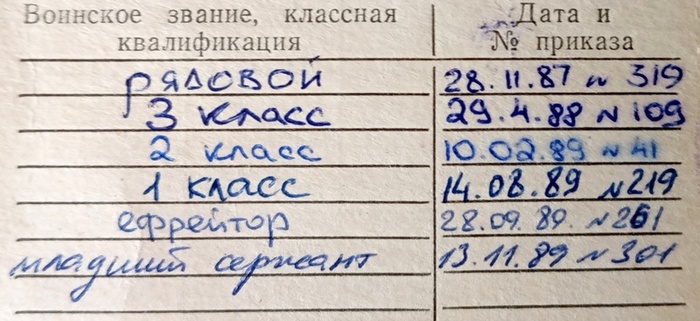 Воинское звание, классная квалификация
Дата и № приказа
рядовой 28.11.87 № 319
3 класс 29.4.88 № 109
2 класс 10.02.89 № 41
1 класс 14.08.89 № 219
ефрейтор 28.09.89. № 261
младший сержант 13.11.89 № 301